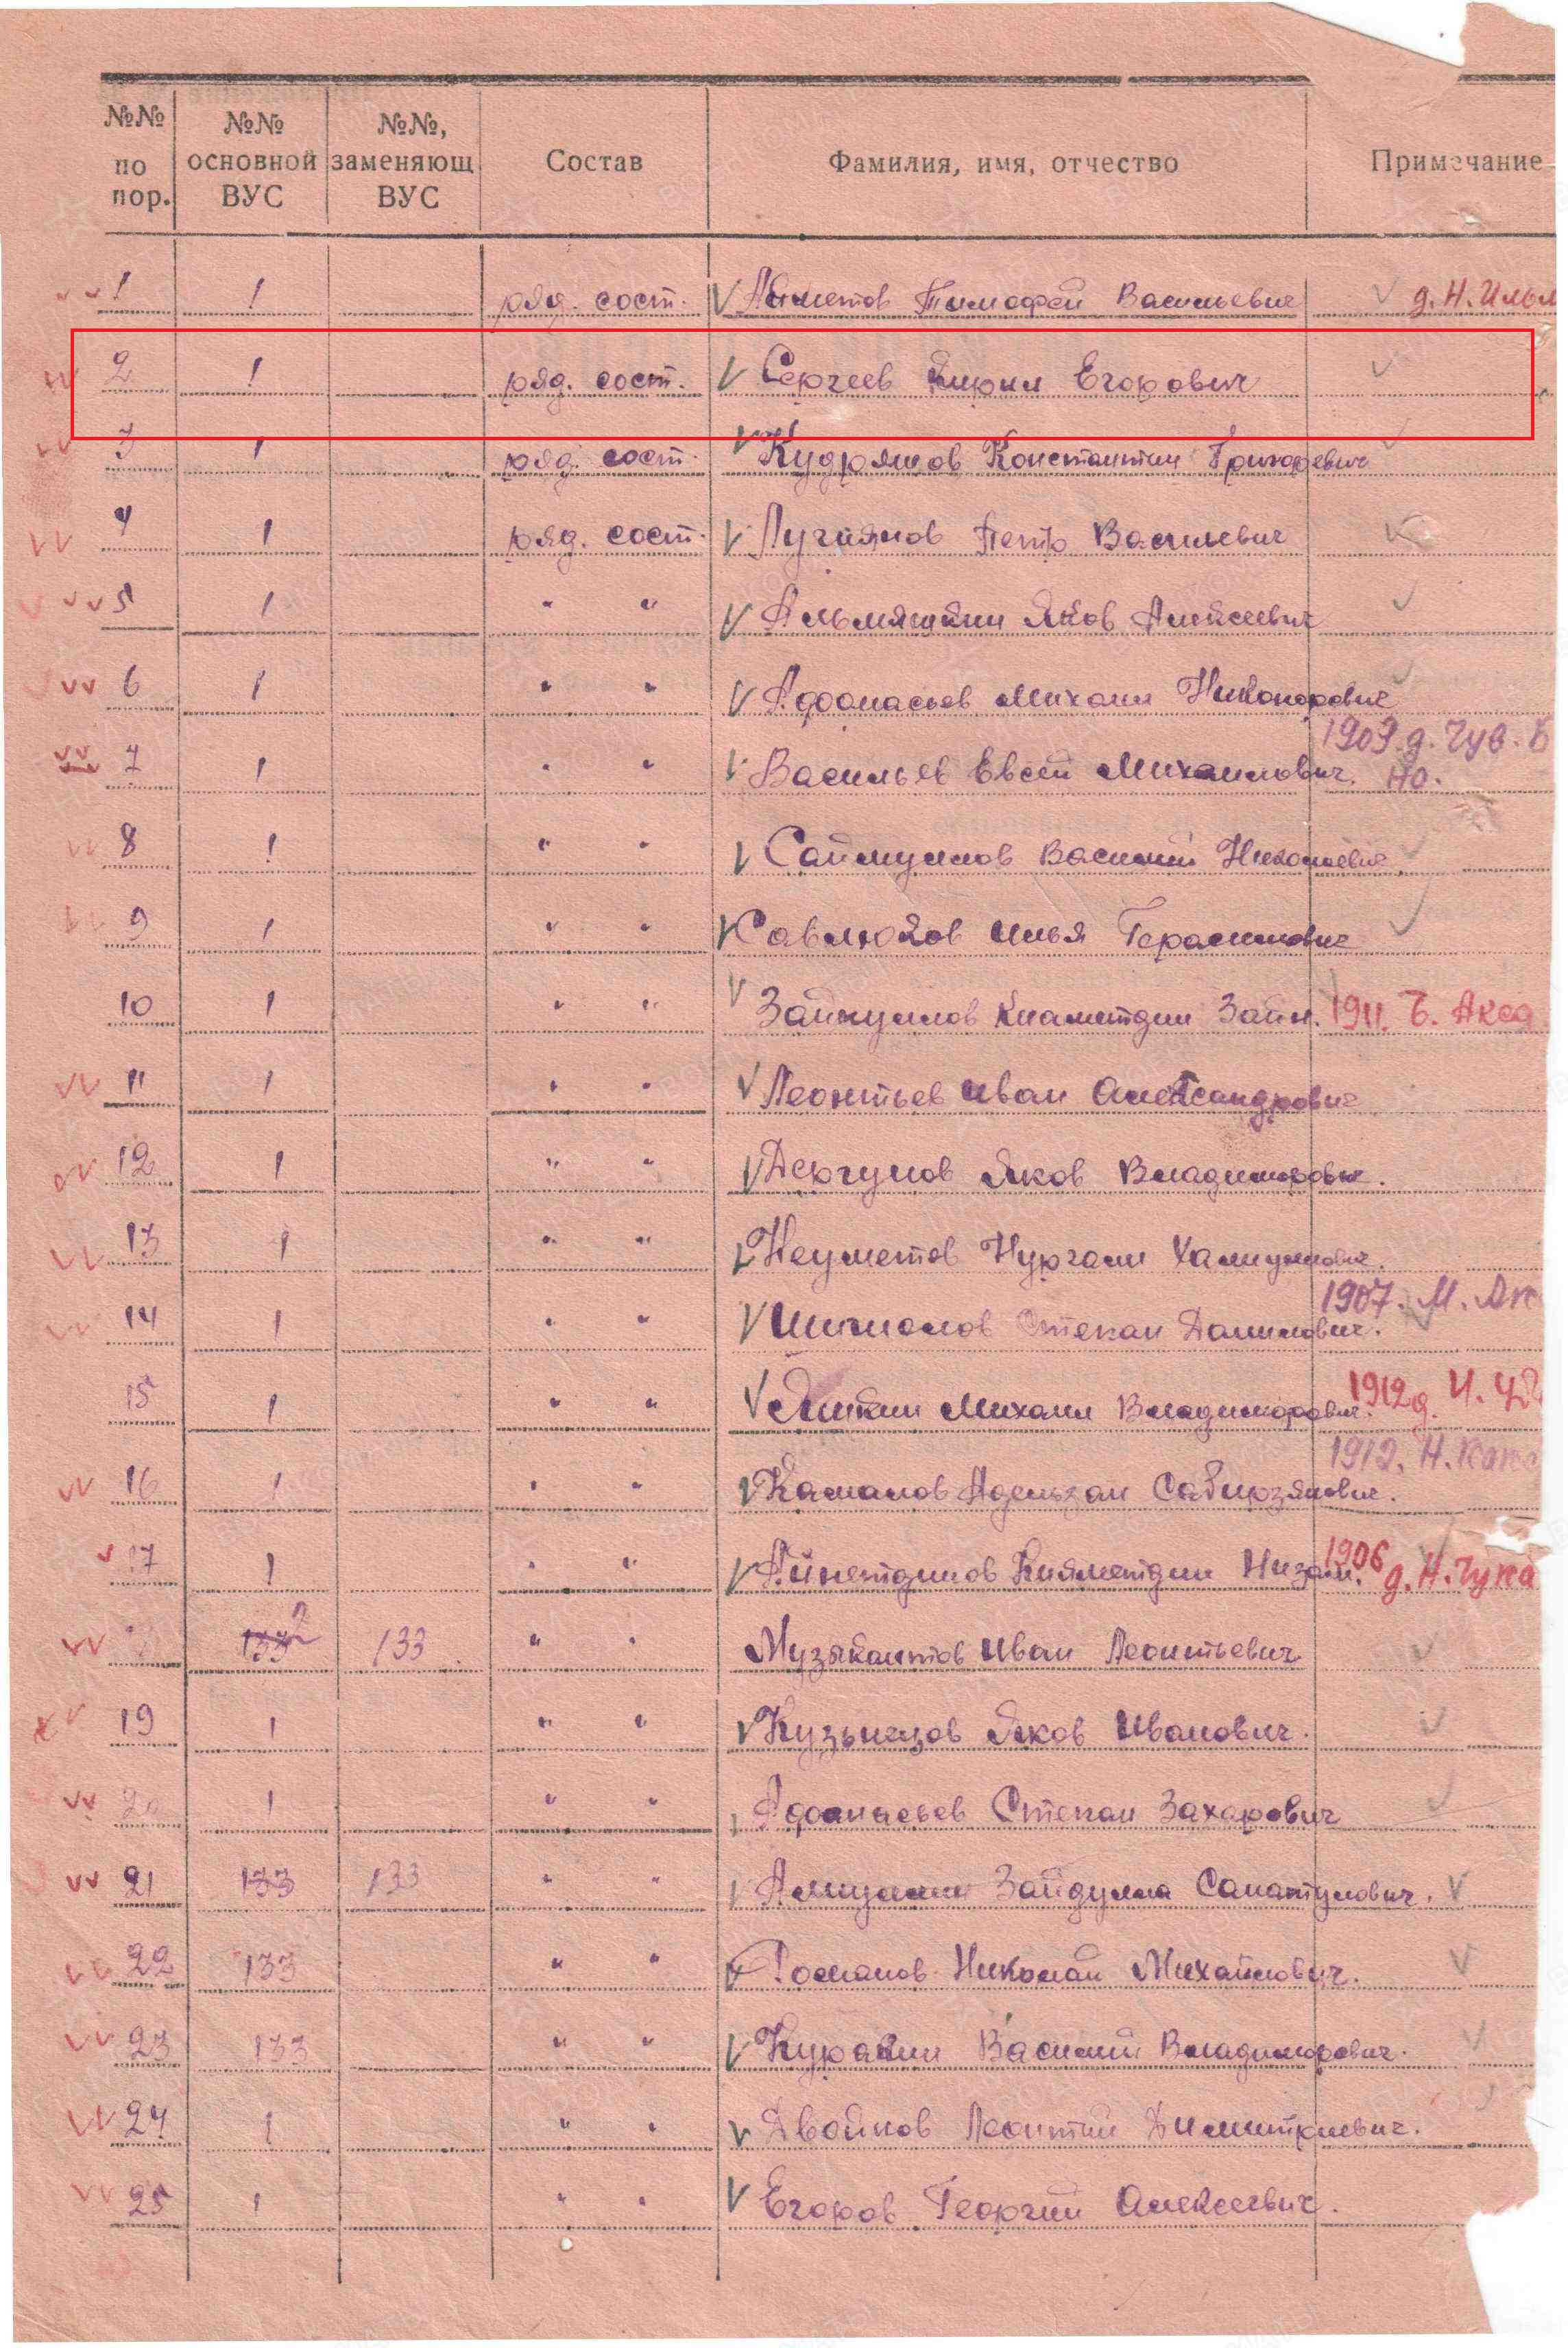 №№ по пор. №№ основной ВУС №№, заменяющ ВУС Состав Фамилия, имя, отчество Примечание
1 1 ряд. сост. Ахметов Тимофей Васильевич д. Н. Ильм
2 1 ряд. сост. Сергеев Кирил Егорович
3 1 ряд. сост. Кудряшов Константин Григорьевич
4 1 ряд. сост. Лугиянов Петр Василевич
5 1 " " Альмяшкин Яков Алексеевич
6 1 " " Афонасьев Михаил Никонорович
1909. д. Чув. Б
7 1 " " Васильев Евсей Михаилович. но.
8 1 " " Саймуллов Василий Николаевич
9 1 " " Савлюков Илья Герасимович
10 1 " " Зайнуллов Киаметдин Зайн. 1911. Б. Акса
11 1 " " Леонтьев Иван Александрович
12 1 " " Дергунов Яков Владимирович.
13 1 " " Неуметов Нургали Халиуллович.
1907. М. Ак
14 1 " " Степан Данилович.
15 1 " " Михаил Владимирович. 1912 д. Н. Чу
1912. Н. Како
16 1 " " Камалов Адельзан Сабирзянович.
17 1 " " Айнетдинов Кияметдин Низам. 1906 д. Н. Чука
133 2 133 " " Музыкантов Иван Леонтьевич
19 1 " " Кузьнецов Яков Иванович.
20 1 " " Афонасьев Степан Захарович
21 133 133 " " Алиуллин Зайдулла Санатулович.
22 133 " " Романов Николай Михайлович.
23 133 " " Куракин Василий Владимирович.
24 1 " " Двойнов Леонтий Димитриевич.
25 1 " " Егоров Георгий Алексеевич.